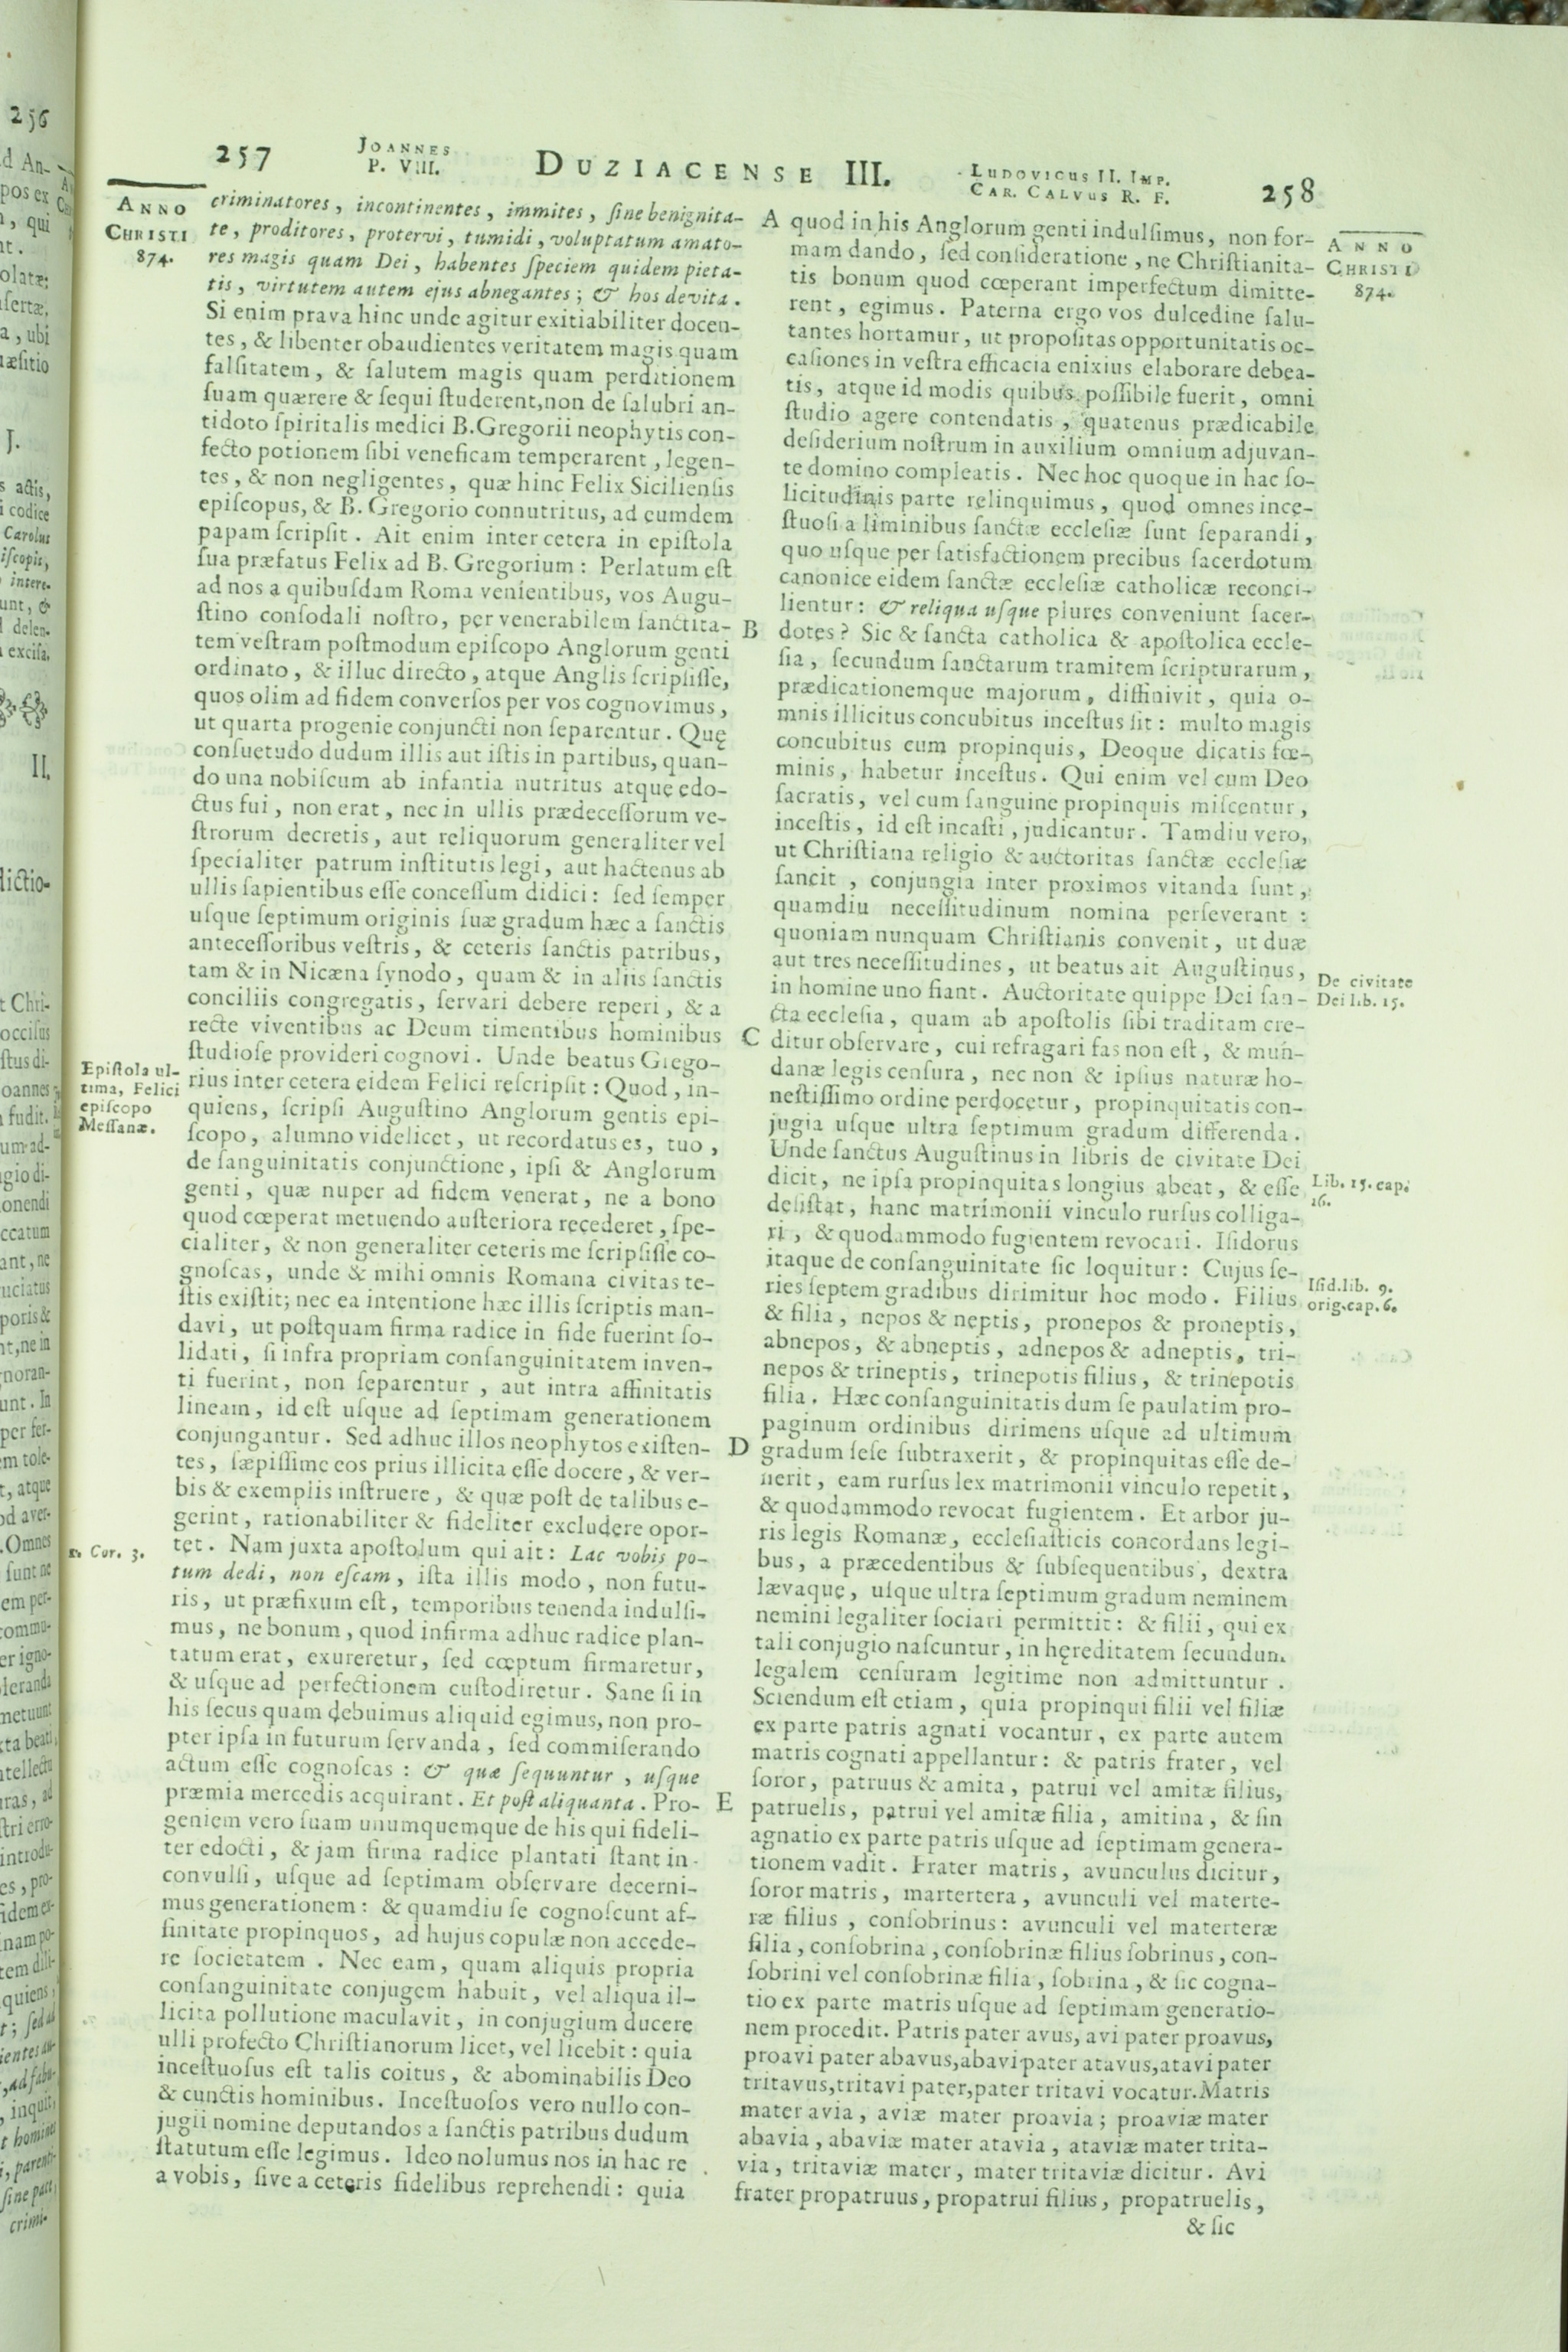 257
JOANNES
P. VIII.
DUZIACENSE III.
LUDOVICUS II. IMP.
CAR. CALVUS R. F.
258
ANNO
CHRISTI
874.
criminatores, incontinentes, immites, ſine benignita-
te, proditores, protervi, tumidi, voluptatum amato-
res magis quam Dei, habentes ſpeciem quidem pieta-
tis, virtutem autem ejus abnegantes; & hos devita.
Si enim prava hinc unde agitur exitiabiliter docen-
tes, & libenter obaudientes veritatem magis quam
falſitatem, & ſalutem magis quam perditionem
ſuam quærere & ſequi ſtuderent, non de ſalubri an-
tidoto ſpiritalis medici B. Gregorii neophytis con-
fecto potionem ſibi veneficam temperarent, legen-
tes, & non negligentes, quæ hinc Felix Sicilienſis
epiſcopus, & B. Gregorio connutritus, ad eumdem
papam ſcripſit. Ait enim inter cetera in epiſtola
ſua præfatus Felix ad B. Gregorium: Perlatum eſt
ad nos a quibuſdam Roma venientibus, vos Augu-
ſtino conſodali noſtro, per venerabilem ſanctita-
tem veſtram poſtmodum epiſcopo Anglorum genti
ordinato, & illuc directo, atque Anglis ſcripſiſſe,
quos olim ad fidem converſos per vos cognovimus,
ut quarta progenie conjuncti non ſeparentur. Quę
conſuetudo dudum illis aut iſtis in partibus, quan-
do una nobiſcum ab infantia nutritus atque edo-
ctus fui, non erat, nec in ullis prædeceſſorum ve-
ſtrorum decretis, aut reliquorum generaliter vel
ſpecialiter patrum inſtitutis legi, aut hactenus ab
ullis ſapientibus eſſe conceſſum didici: ſed ſemper
uſque ſeptimum originis ſuæ gradum hæc a ſanctis
anteceſſoribus veſtris, & ceteris ſanctis patribus,
tam & in Nicæna ſynodo, quam & in aliis ſanctis
conciliis congregatis, ſervari debere reperi, & a
recte viventibus ac Deum timentibus hominibus
ſtudioſe provideri cognovi. Unde beatus Grego-
Epiſtola ul-
tima, Felici
epiſcopo
Meſſanæ.
rius inter cetera eidem Felici reſcripſit: Quod, in-
quiens, ſcripſi Auguſtino Anglorum gentis epi-
ſcopo, alumno videlicet, ut recordatus es, tuo,
de ſanguinitatis conjunctione, ipſi & Anglorum
genti, quæ nuper ad fidem venerat, ne a bono
quod cœperat metuendo auſteriora recederet, ſpe-
cialiter, & non generaliter ceteris me ſcripſiſſe co-
gnoſcas, unde & mihi omnis Romana civitas te-
ſtis exiſtit; nec ea intentione hæc illis ſcriptis man-
davi, ut poſtquam firma radice in fide fuerint ſo-
lidati, ſi infra propriam conſanguinitatem inven-
ti fuerint, non ſeparentur, aut intra affinitatis
lineam, id eſt uſque ad ſeptimam generationem
conjungantur. Sed adhuc illos neophytos exiſten-
tes, ſæpiſſime eos prius illicita eſſe docere, & ver-
bis & exemplis inſtruere, & quæ poſt de talibus e-
gerint, rationabiliter & fideliter excludere opor-
1. Cor. 3.
tet. Nam juxta apoſtolum qui ait: Lac vobis po-
tum dedi, non eſcam, iſta illis modo, non futu-
ris, ut præfixum eſt, temporibus tenenda indulſi-
mus, ne bonum, quod infirma adhuc radice plan-
tatum erat, exureretur, ſed cœptum firmaretur,
& uſque ad perfectionem cuſtodiretur. Sane ſi in
his ſecus quam debuimus aliquid egimus, non pro-
pter ipſa in futurum ſervanda, ſed commiſerando
actum eſſe cognoſcas: & quæ ſequuntur, uſque
præmia mercedis acquirant. Et poſt aliquanta. Pro-
geniem vero ſuam unumquemque de his qui fideli-
ter edocti, & jam firma radice plantati ſtant in-
convulſi, uſque ad ſeptimam obſervare decerni-
mus generationem: & quamdiu ſe cognoſcunt af-
finitate propinquos, ad hujus copulæ non accede-
re ſocietatem. Nec eam, quam aliquis propria
conſanguinitate conjugem habuit, vel aliqua il-
licita pollutione maculavit, in conjugium ducere
ulli profecto Chriſtianorum licet, vel licebit: quia
inceſtuoſus eſt talis coitus, & abominabilis Deo
& cunctis hominibus. Inceſtuoſos vero nullo con-
jugii nomine deputandos a ſanctis patribus dudum
ſtatutum eſſe legimus. Ideo nolumus nos in hac re
a vobis, ſive a ceteris fidelibus reprehendi: quia
A
B
C
D
E
quod in his Anglorum genti indulſimus, non for-
mam dando, ſed conſideratione, ne Chriſtianita-
tis bonum quod cœperant imperfectum dimitte-
rent, egimus. Paterna ergo vos dulcedine ſalu-
tantes hortamur, ut propoſitas opportunitatis oc-
caſiones in veſtra efficacia enixius elaborare debea-
tis, atque id modis quibus poſſibile fuerit, omni
ſtudio agere contendatis, quatenus prædicabile
deſiderium noſtrum in auxilium omnium adjuvan-
te domino compleatis. Nec hoc quoque in hac ſo-
licitudinis parte relinquimus, quod omnes ince-
ſtuoſi a liminibus ſanctæ eccleſiæ ſunt ſeparandi,
quo uſque per ſatisfactionem precibus ſacerdotum
canonice eidem ſanctæ eccleſiæ catholicæ reconci-
lientur: & reliqua uſque plures conveniunt ſacer-
dotes? Sic & ſancta catholica & apoſtolica eccle-
ſia, ſecundum ſanctarum tramitem ſcripturarum,
prædicationemque majorum, diffinivit, quia o-
mnis illicitus concubitus inceſtus ſit: multo magis
concubitus cum propinquis, Deoque dicatis fœ-
minis, habetur inceſtus. Qui enim vel cum Deo
ſacratis, vel cum ſanguine propinquis miſcentur,
inceſtis, id eſt incaſti, judicantur. Tamdiu vero,
ut Chriſtiana religio & auctoritas ſanctæ eccleſiæ
ſancit, conjungia inter proximos vitanda ſunt,
quamdiu neceſſitudinum nomina perſeverant:
quoniam nunquam Chriſtianis convenit, ut duæ
aut tres neceſſitudines, ut beatus ait Auguſtinus,
in homine uno fiant. Auctoritate quippe Dei ſan-
cta eccleſia, quam ab apoſtolis ſibi traditam cre-
ditur obſervare, cui refragari fas non eſt, & mun-
danæ legis cenſura, nec non & ipſius naturæ ho-
neſtiſſimo ordine perdocetur, propinquitatis con-
jugia uſque ultra ſeptimum gradum differenda.
Unde ſanctus Auguſtinus in libris de civitate Dei
dicit, ne ipſa propinquitas longius abeat, & eſſe
deſiſtat, hanc matrimonii vinculo rurſus colliga-
ri, & quodammodo fugientem revocari. Iſidorus
itaque de conſanguinitate ſic loquitur: Cujus ſe-
ries ſeptem gradibus dirimitur hoc modo. Filius
& filia, nepos & neptis, pronepos & proneptis,
abnepos, & abneptis, adnepos & adneptis, tri-
nepos & trineptis, trinepotis filius, & trinepotis
filia. Hæc conſanguinitatis dum ſe paulatim pro-
paginum ordinibus dirimens uſque ad ultimum
gradum ſeſe ſubtraxerit, & propinquitas eſſe de-
ſierit, eam rurſus lex matrimonii vinculo repetit,
& quodammodo revocat fugientem. Et arbor ju-
ris legis Romanæ, eccleſiaſticis concordans legi-
bus, a præcedentibus & ſubſequentibus, dextra
lævaque, uſque ultra ſeptimum gradum neminem
nemini legaliter ſociari permittit: & filii, qui ex
tali conjugio naſcuntur, in hęreditatem ſecundum
legalem cenſuram legitime non admittuntur.
Sciendum eſt etiam, quia propinqui filii vel filiæ
ex parte patris agnati vocantur, ex parte autem
matris cognati appellantur: & patris frater, vel
ſoror, patruus & amita, patrui vel amitæ filius,
patruelis, patrui vel amitæ filia, amitina, & ſin
agnatio ex parte patris uſque ad ſeptimam genera-
tionem vadit. Frater matris, avunculus dicitur,
ſoror matris, martertera, avunculi vel materte-
ræ filius, conſobrinus: avunculi vel materteræ
filia, conſobrina, conſobrinæ filius ſobrinus, con-
ſobrini vel conſobrinæ filia, ſobrina, & ſic cogna-
tio ex parte matris uſque ad ſeptimam generatio-
nem procedit. Patris pater avus, avi pater proavus,
proavi pater abavus, abavi pater atavus, atavi pater
tritavus, tritavi pater, pater tritavi vocatur. Matris
mater avia, aviæ mater proavia; proaviæ mater
abavia, abaviæ mater atavia, ataviæ mater trita-
via, tritaviæ mater, mater tritaviæ dicitur. Avi
frater propatruus, propatrui filius, propatruelis,
& ſic
ANNO
CHRISTI
874.
De civitate
Dei lib. 15.
Lib. 15. cap.
16.
Iſid. lib. 9.
orig. cap. 6.
256